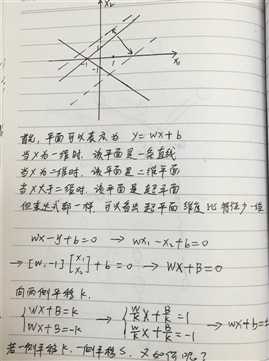 X₂
X₁
-1
1
-1
首先, 平面可以表示为 y = wx + b
当X为一维时, 该平面是一条直线
当X为二维时, 该平面是二维平面
当X大于二维时, 该平面是超平面
但表达式都一样, 可以看出超平面维度比特征少一维
wx-y+b=0 → wx₁-x₂+b=0
→ [w,-1][x₁ x₂]+b=0 → WX+B=0
向两侧平移k,
{WX+B=k → {W/k X+B/k=1 → wx+b=±
{WX+B=-k {W/k X+B/k=-1
若一侧平移k, 一侧平移s, 又如何呢?